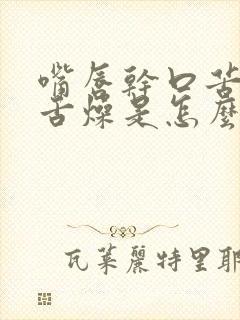 嘴唇幹口苦
舌燥是怎麼
瓦萊麗特里耶